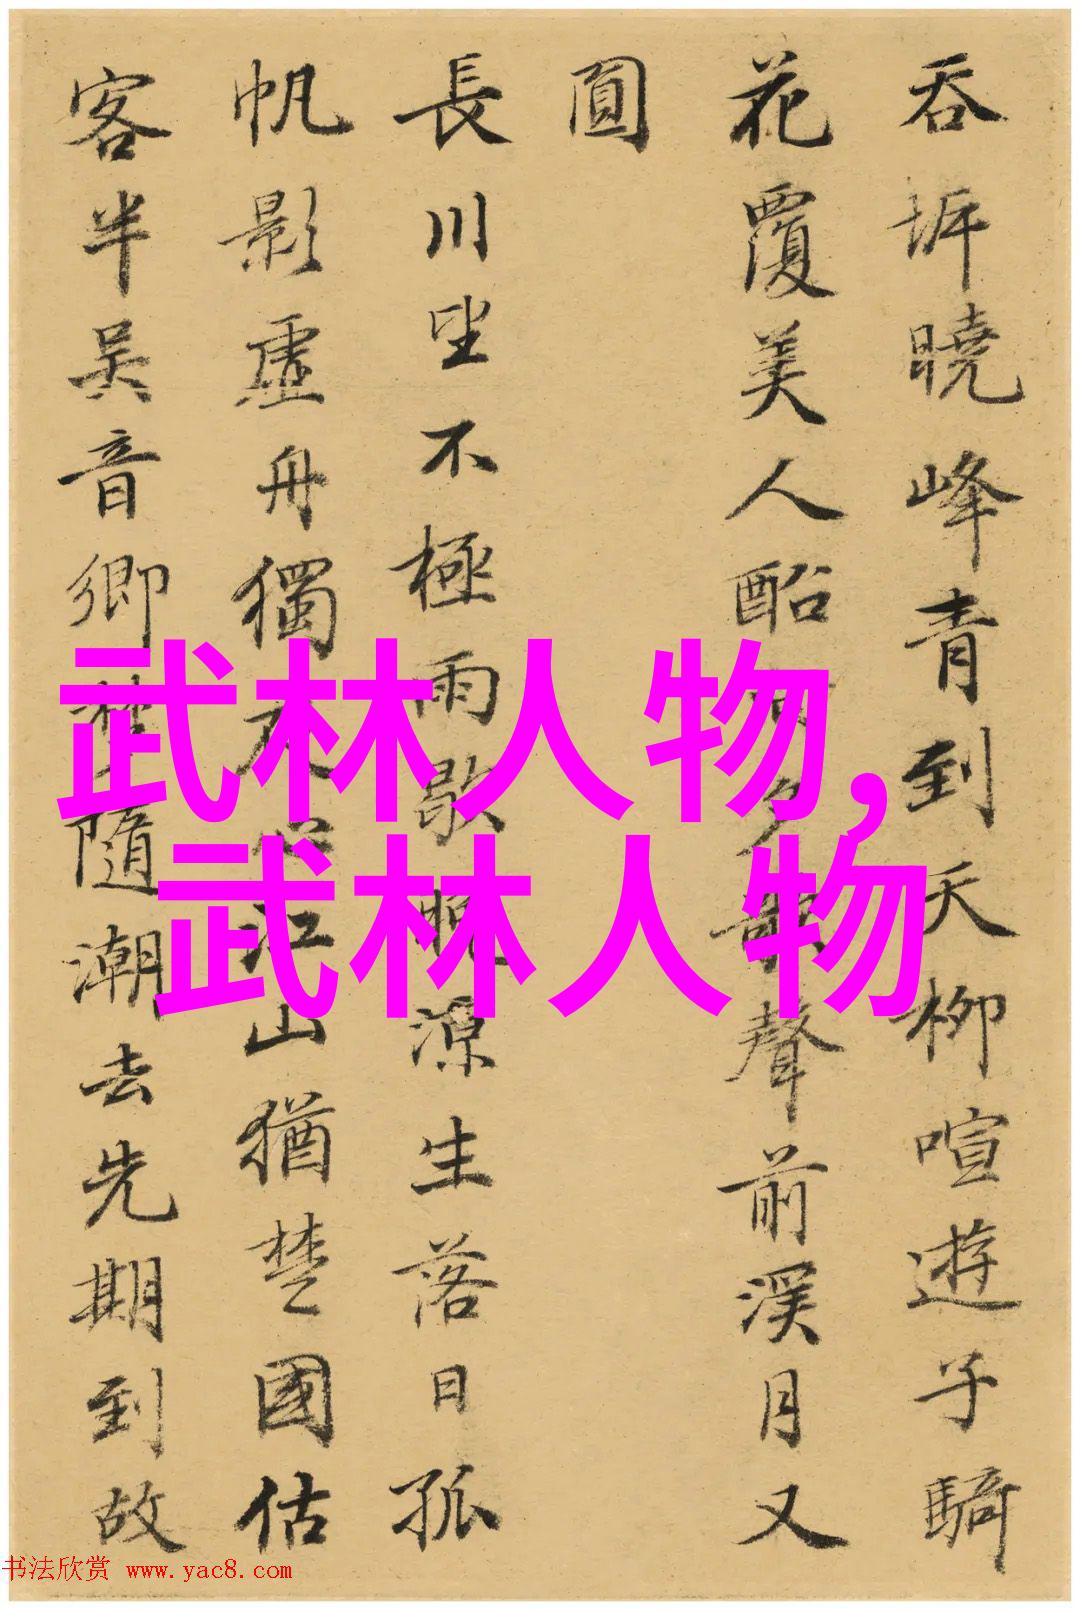 吞坼曉峰青到天柳喧遊子騎
花覆美人酩夕歌聲前溪月又
圓
長川坐不極雨歇晚源生落日孤
帆影虛舟獨夜心江山猶楚國估
客半吳音鄉社隨潮去先期到故
武林人物,
武林人物
书法欣赏 www.yac8.com